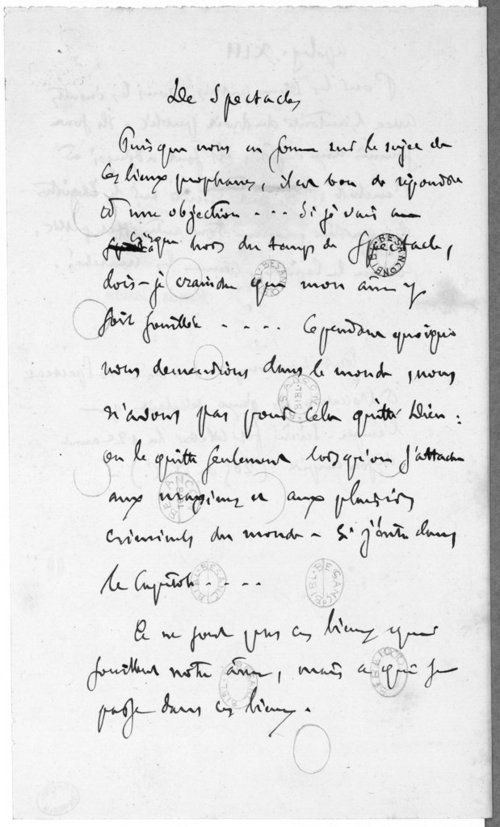 De Spectaculis
Puisque nous en sommes sur le sujet de
ces lieux prophanes, il est bon de répondre
à une objection - - - Si je vais au
cirque hors du temps de spectacle,
dois-je craindre que mon ame y
soit souillée - - - - Cependant quoique
nous demeurions dans le monde, nous
n'avons pas pour cela quitté Dieu :
on le quitte seulement lorsqu'on s'attache
aux et aux plaisirs
criminels du monde - Si j'entre dans
le Capitole - - - -
Ce ne sont pas ces lieux qui
souillent notre âme, mais ce qui se
passe dans ces lieux.
BIBL. DE BESANÇON